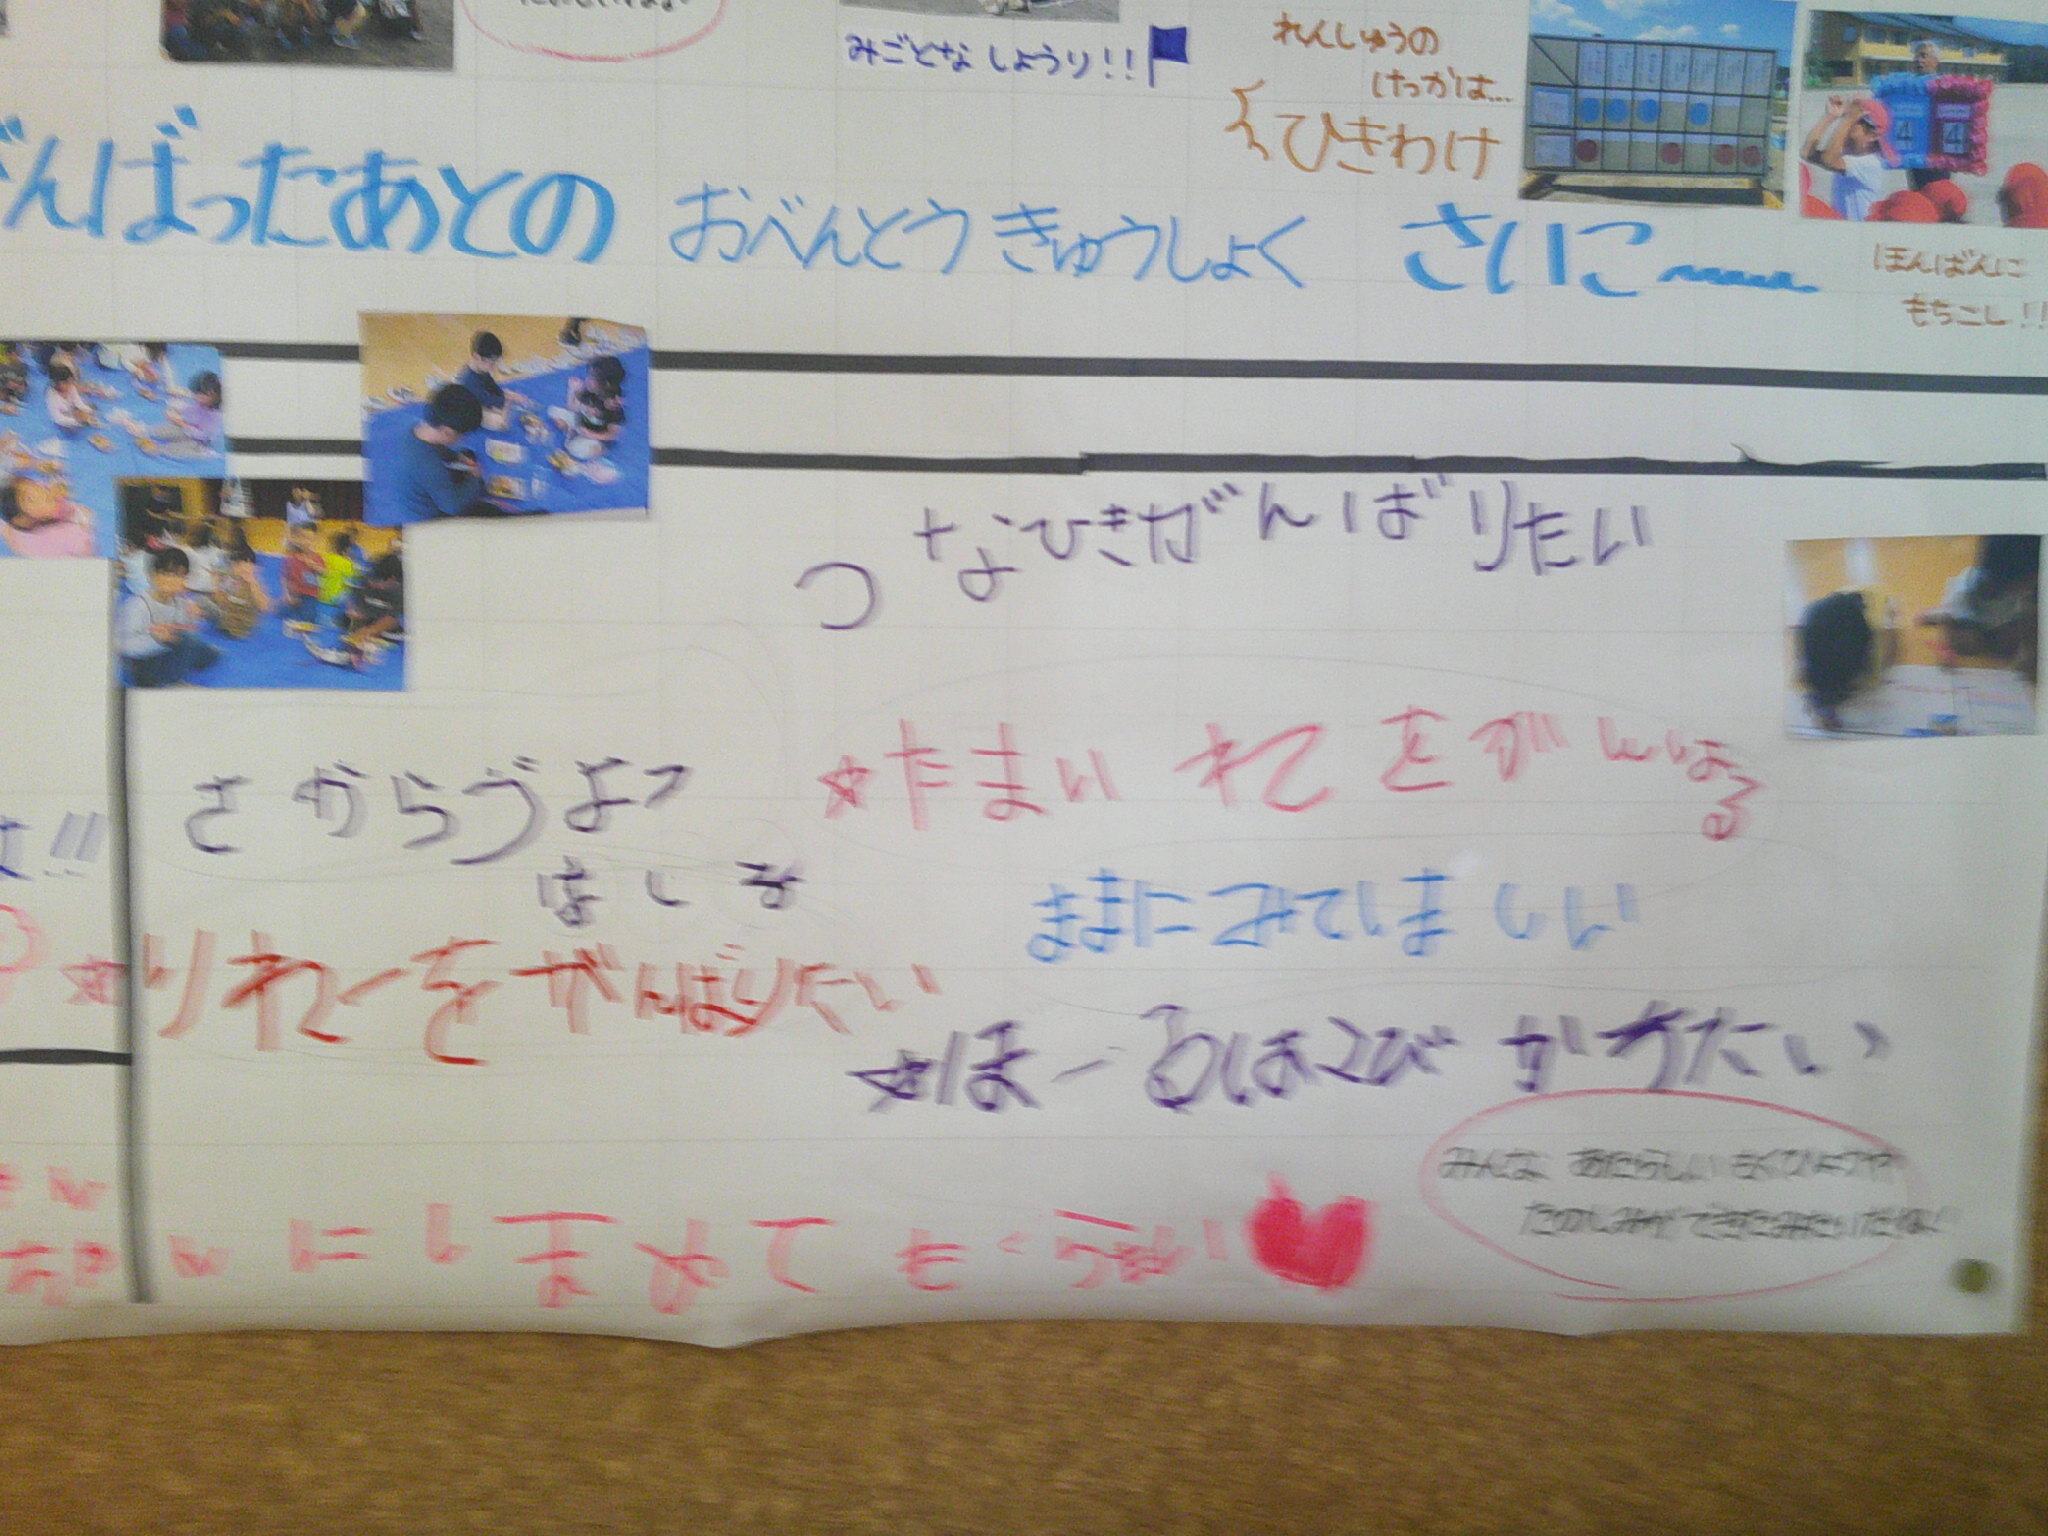 みごとなしょうり!!
れんしゅうの
けっかは...
ひきわけ
がんばったあとの おべんとうきゅうしょく さいこ〜
ほんばんに
もちこし!!
4 4
つなひきがんばりたい
★たまいれをがんばる
さからづよつ
はしる
ままにみてほしい
★りれーをがんばりたい
★ほーるはこび かちたい
みんな あたらしい もくひょうや
たのしみが できたみたいだね!